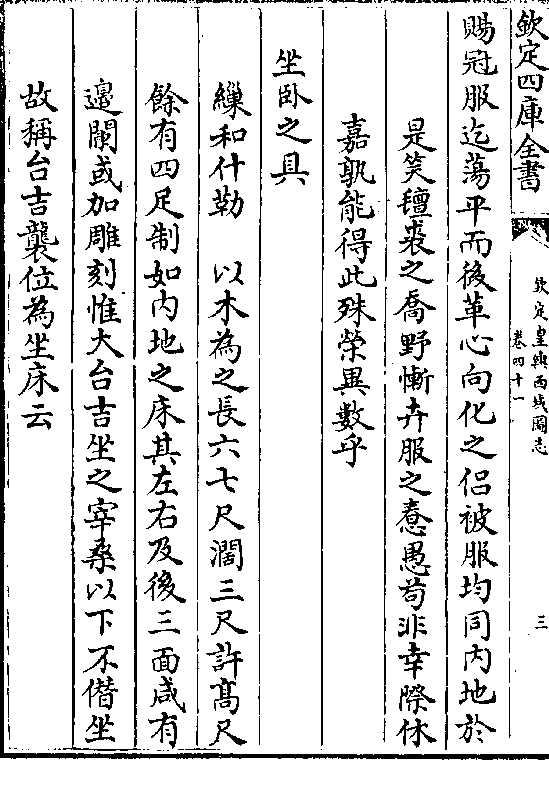 欽定四庫全書
欽定皇輿西域圖志
卷四十一
三
賜冠服迄蕩平而後革心向化之侣被服均同内地於
是笑氊裘之喬野慚卉服之惷愚苟非幸際休
嘉孰能得此殊榮異數乎
坐卧之具
繅和什勒 以木為之長六七尺濶三尺許髙尺
餘有四足制如内地之床其左右及後三面咸有
邊闌或加雕刻惟大台吉坐之宰桑以下不僭坐
故稱台吉襲位為坐床云